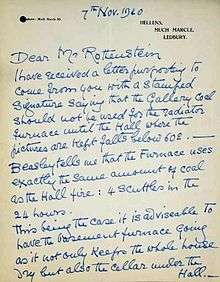 7th Nov. 1940
HELLENS,
MUCH MARCLE,
LEDBURY.
Much Marcle 20.
Dear Mr Rottenstein
I have received a letter purporting to
come from you with a Stamped
Signature saying that the Gallery Coal
should not be used for the radiator
furnace until the Hall, where the
pictures are kept falls below 60E —
Beasley tells me that the Furnace uses
exactly the same amount of coal
as the Hall fire: 4 Scuttles in the
24 hours.
This being the case it is adviseable to
have the basement furnace going
as it not only keeps the whole house
dry but also the cellar under the
Hall —